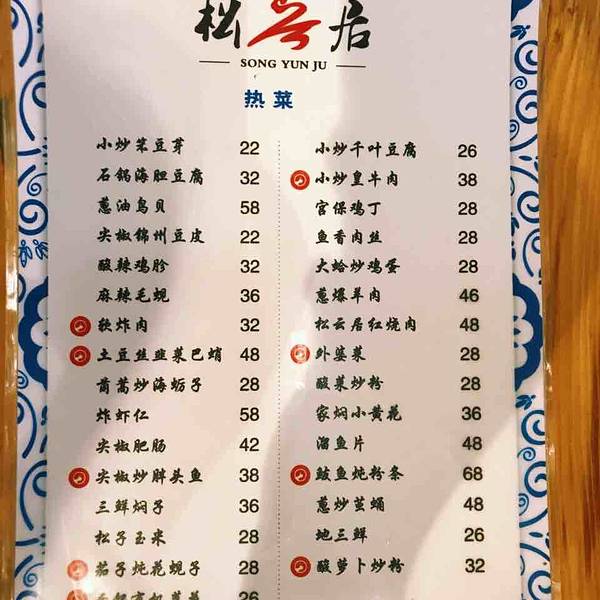 松云居
SONG YUN JU
热菜
小炒笨豆芽 22
石锅海胆豆腐 32
葱油鸟贝 58
尖椒锦州豆皮 22
酸辣鸡胗 32
麻辣毛蚬 36
软炸肉 32
土豆丝韭菜巴蛸 48
茼蒿炒海蛎子 28
炸虾仁 58
尖椒肥肠 42
尖椒炒胖头鱼 38
三鲜焖子 36
松子玉米 28
茄子炖花蚬子 28
26
小炒千叶豆腐 26
小炒皇牛肉 38
宫保鸡丁 28
鱼香肉丝 28
大蛤炒鸡蛋 28
葱爆羊肉 46
松云居红烧肉 48
外婆菜 28
酸菜炒粉 28
家焖小黄花 36
溜鱼片 48
鲅鱼炖粉条 68
葱炒茧蛹 48
地三鲜 26
酸萝卜炒粉 32